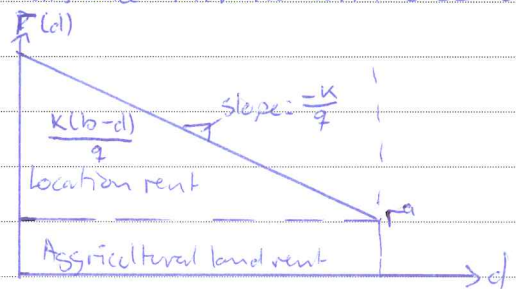 r(d)
slope = -k/q
k(b-d)/q
Location rent
rᵃ
Aggricultural land rent
d